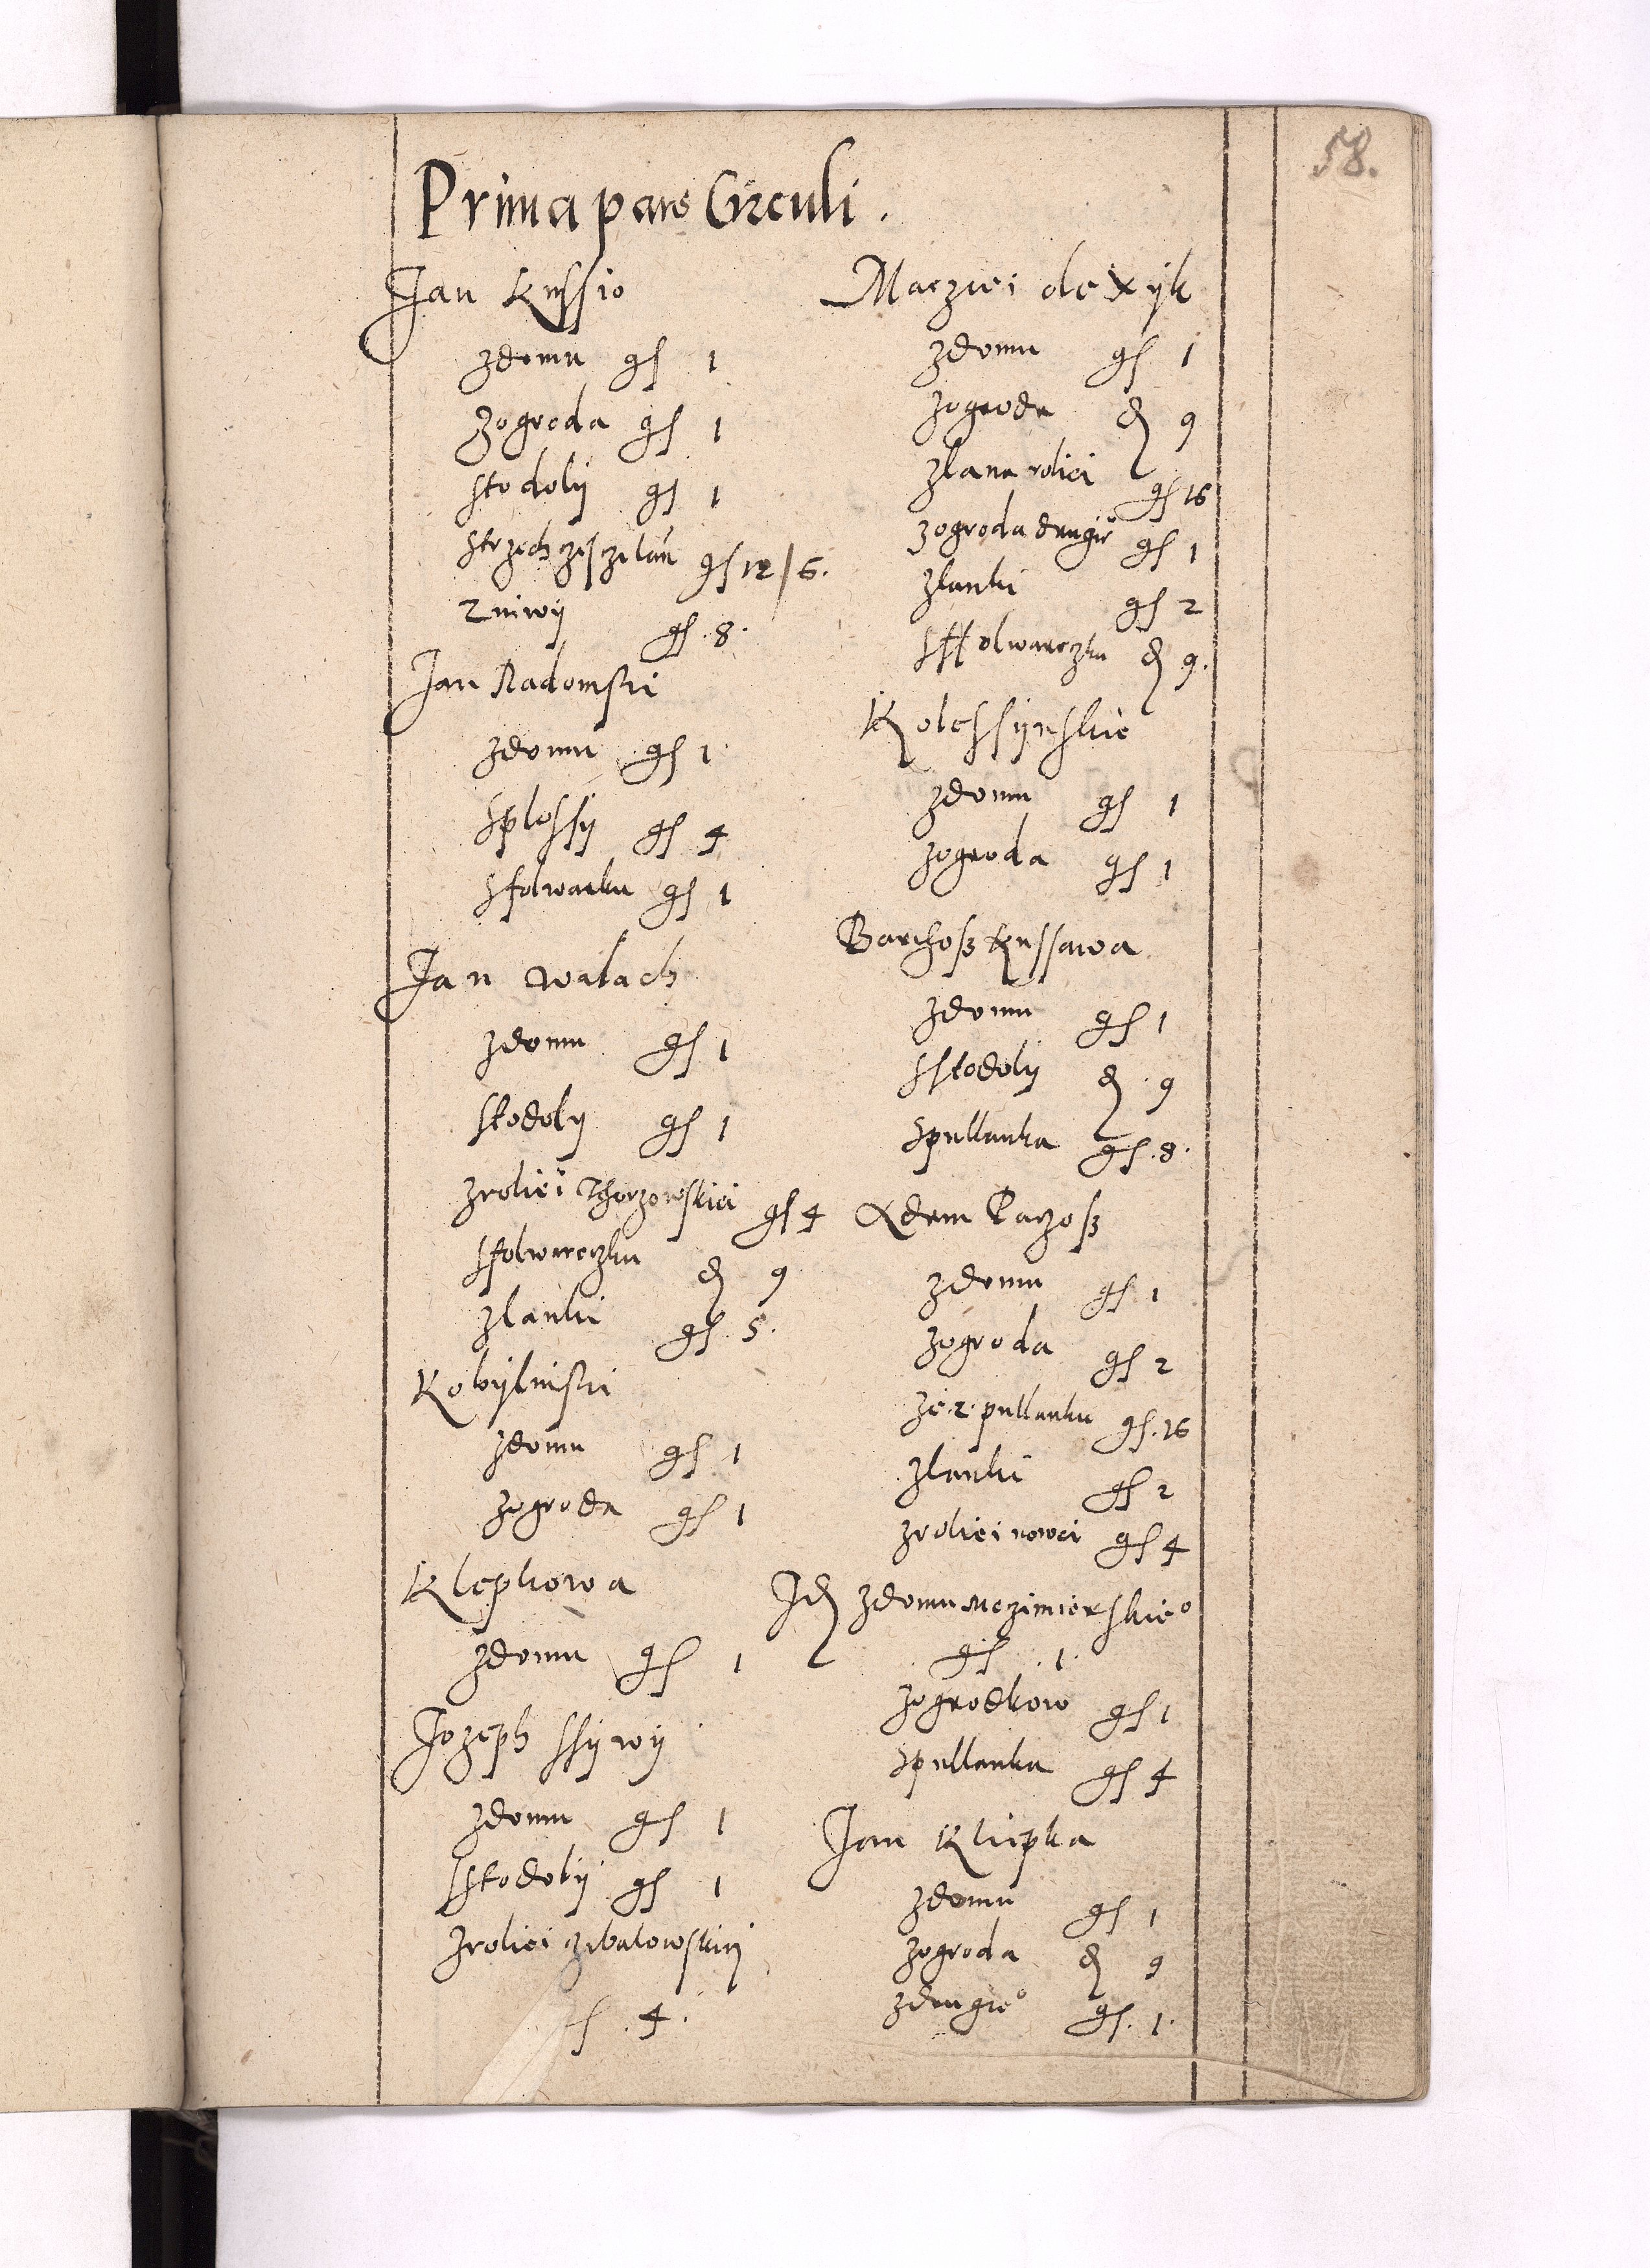 58.
Prima pars Circuli.
Jan Kussio
zdomu gs 1
zogroda gs 1
stodolÿ gs 1
strzech zesczi lan gs 12/6.
zniwÿ gs .8.
Jan Radomski
zdomu gs 1
splossÿ gs 4
sfolwarku gs 1
Jan walach
zdomu gs 1
stodolÿ gs 1
zroliei Thorzowskiei gs 4
sfolwarczku d 9
zlanki gs 5.
Kobÿlinski
zdomu gs 1
zogroda gs 1
Klepkowa
zdomu gs 1
Jozeph ssÿwÿ
zdomu gs 1
sstodolÿ gs 1
zroliei zebalowskiei
s .4.
Macziei olexÿk
zdomu gs 1
zogroda d 9
zlana roliei gs 16
zogroda drugie° gs 1
zlanki gs 2
sffolwarczku d 9.
Kolessÿnskie
zdomu gs 1
zogroda gs 1
Barthosz Kussowa
zdomu gs 1
sstodolÿ d 9
spullanka gs .8.
Adam Paczosz
zdomu gs 1
zogroda gs 2
ze .2. pullanku gs .16
zlanki gs 2
zroliei nowei gs 4
Id zdomu Mezimierskie°
gs .1.
zogrodkow gs 1
spullanka gs 4
Jan Kliepka
zdomu gs 1
zogroda d 9
zdrugie° gs .1.